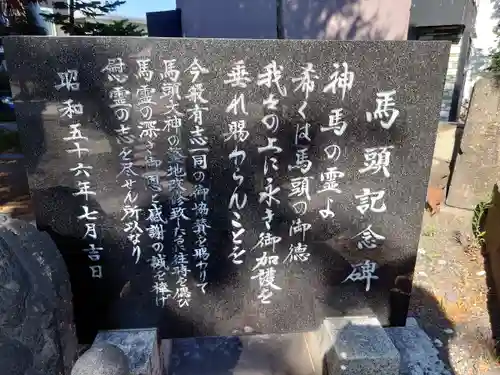 馬頭記念碑
神馬の霊よ
希くは馬頭の御徳
我々の上に永き御加護を
垂れ賜わらんことを
今般有志一同の御協賛を賜りて
馬頭大神の墓地改修致した㐂往時を偲び
馬霊の深き御恩と感謝の誠を捧げ
慰霊の志を尽せん所以なり
昭和五十六年七月吉日